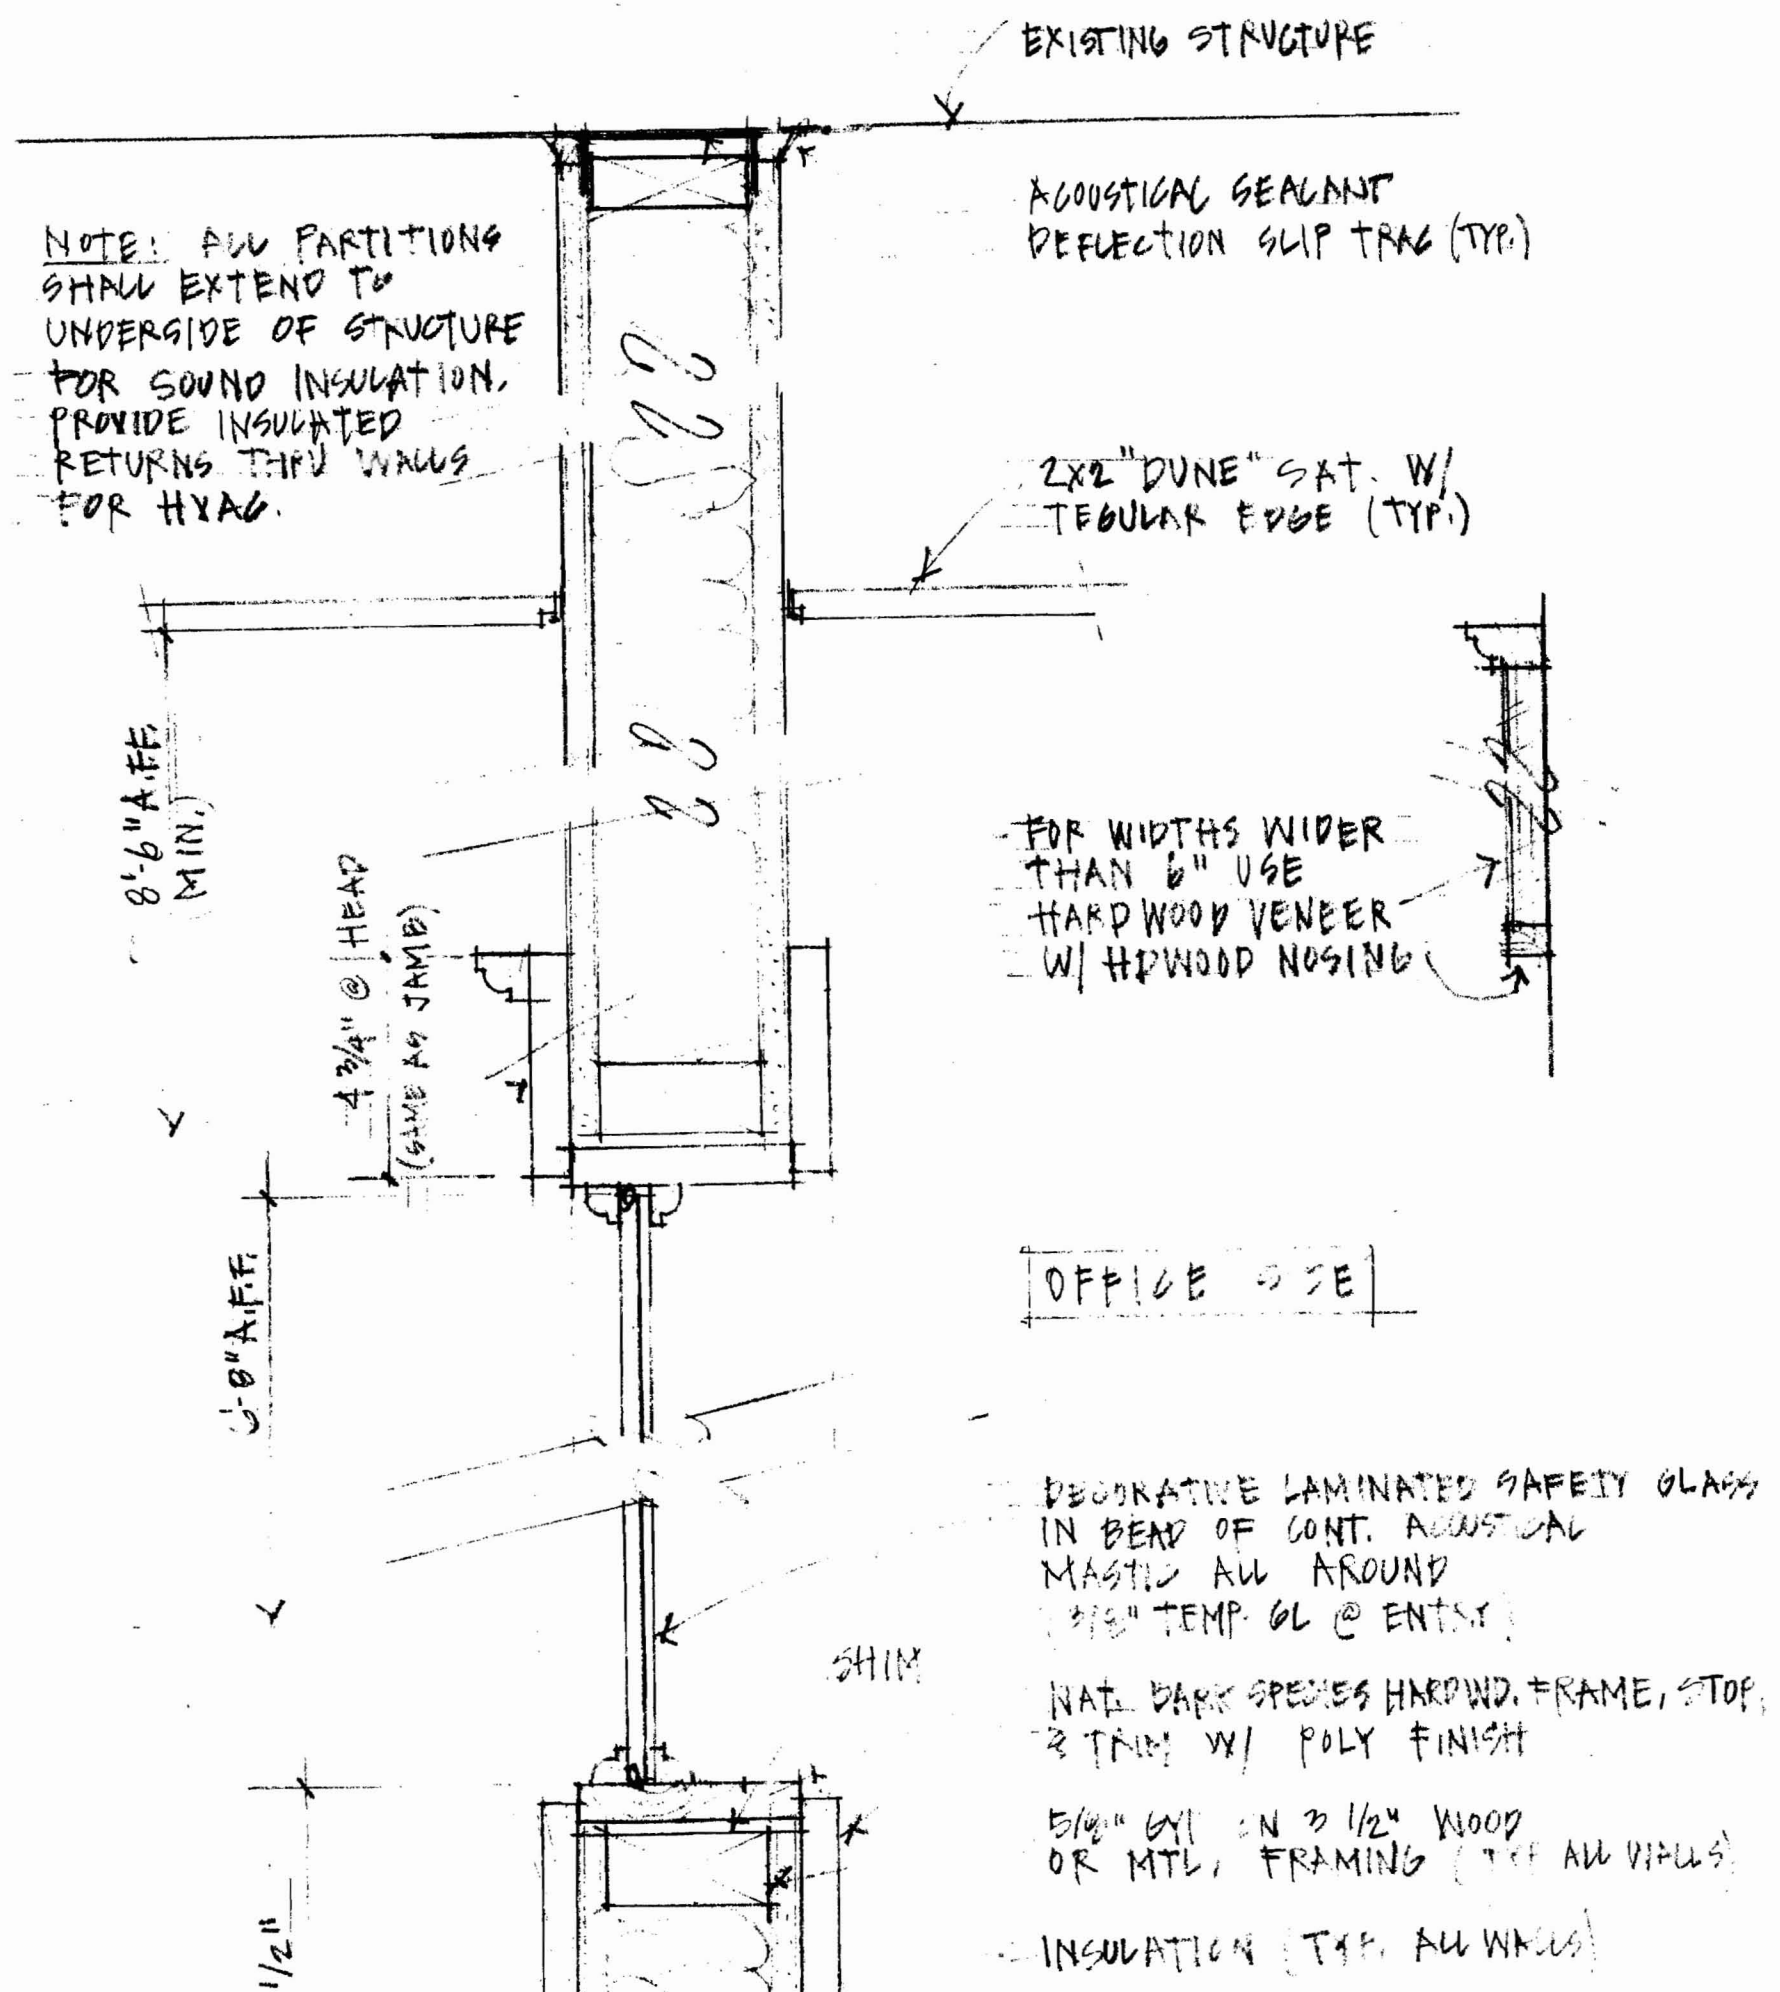 EXISTING STRUCTURE
ACOUSTICAL SEALANT
DEFLECTION SLIP TRAC (TYP.)
NOTE: ALL PARTITIONS
SHALL EXTEND TO
UNDERSIDE OF STRUCTURE
FOR SOUND INSULATION.
PROVIDE INSULATED
RETURNS THRU WALLS
FOR HVAC.
2X2 "DUNE" SAT. W/
TEGULAR EDGE (TYP.)
8'-6" A.F.F.
(MIN.)
4 3/4" @ HEAD
(SAME AS JAMB)
FOR WIDTHS WIDER
THAN 6" USE
HARDWOOD VENEER
W/ HDWOOD NOSING
6'-8" A.F.F.
OFFICE
DECORATIVE LAMINATED SAFETY GLASS
IN BEAD OF CONT. ACOUSTICAL
MASTIC ALL AROUND
3/8" TEMP. GL @ ENTRY
SHIM
NAT. DARK SPECIES HARDWD. FRAME, STOP,
& TRIM W/ POLY FINISH
5/8" GYP ON 3 1/2" WOOD
OR MTL. FRAMING (TYP ALL WALLS)
INSULATION (TYP. ALL WALLS)
1/2"